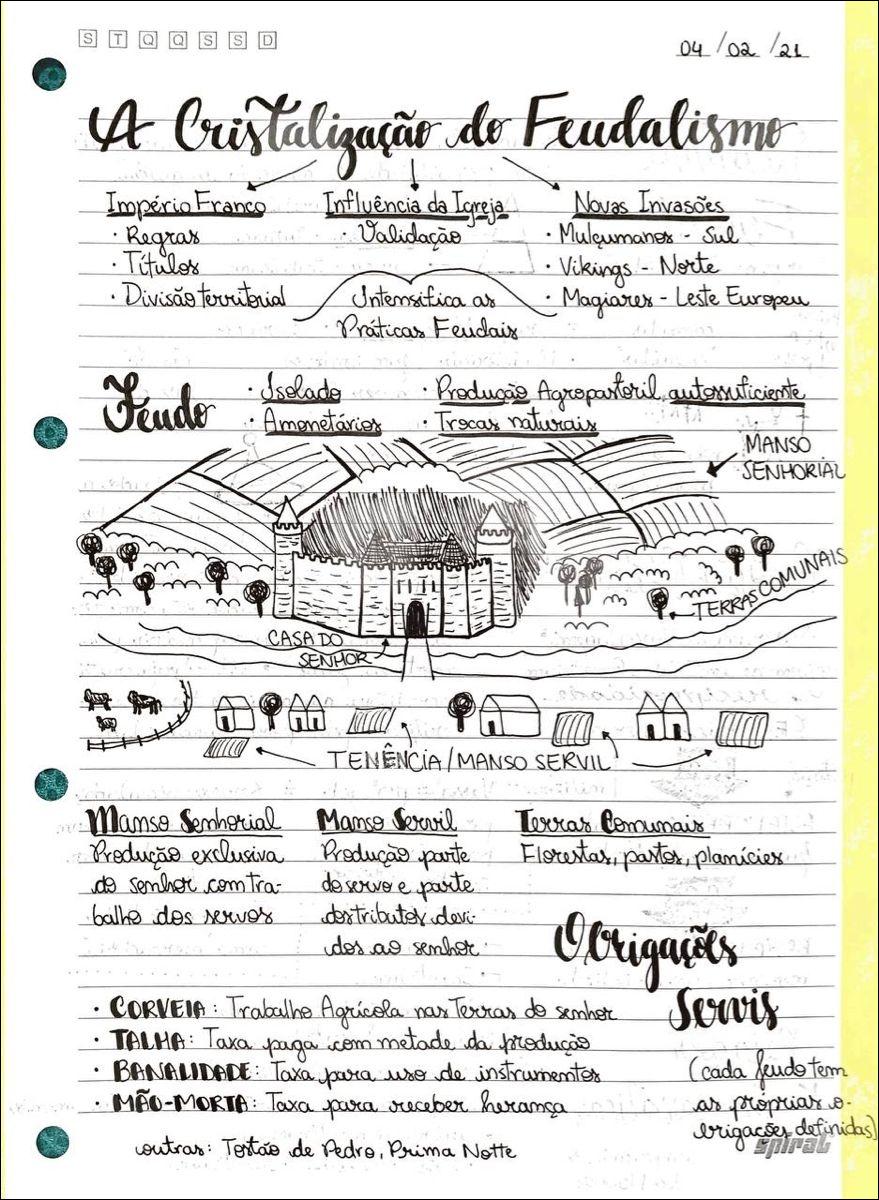 S T Q Q S S D
04 / 02 / 21
A Cristalização do Feudalismo
Império Franco
· Regras
· Títulos
· Divisão territorial
Influência da Igreja
· Validação
Intensifica as
Práticas Feudais
Novas Invasões
· Mulçumanos - Sul
· Vikings - Norte
· Magiares - Leste Europeu
Feudo
· Isolado
· Amonetários
· Produção Agropastoril, autossuficiente
· Trocas naturais
MANSO
SENHORIAL
TERRAS COMUNAIS
CASA DO
SENHOR
TENÊNCIA/MANSO SERVIL
Manso Senhorial
Produção exclusiva
do senhor com tra-
balho dos servos
Manso Servil
Produção parte
do servo e parte
dos tributos devi-
dos ao senhor
Terras Comunais
Florestas, pastos, planícies
Obrigações
Servis
(cada feudo tem
as próprias o-
brigações definidas)
· CORVEIA: Trabalho Agrícola nas Terras do senhor
· TALHA: Taxa paga com metade da produção
· BANALIDADE: Taxa para uso de instrumentos
· MÃO-MORTA: Taxa para receber herança
outras: Tostão de Pedro, Prima Notte
spiral